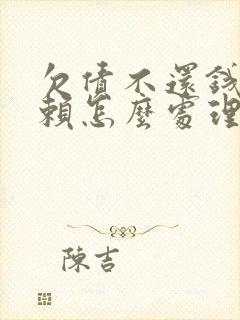 欠債不還錢
賴怎麼處理
陳吉